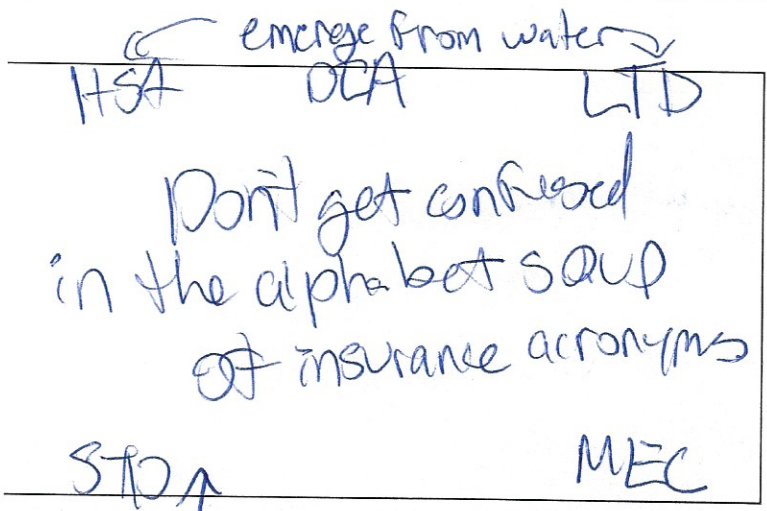 emerge from water
HSA DCA LTD
Don't get confused
in the alphabet soup
of insurance acronyms
STD MEC